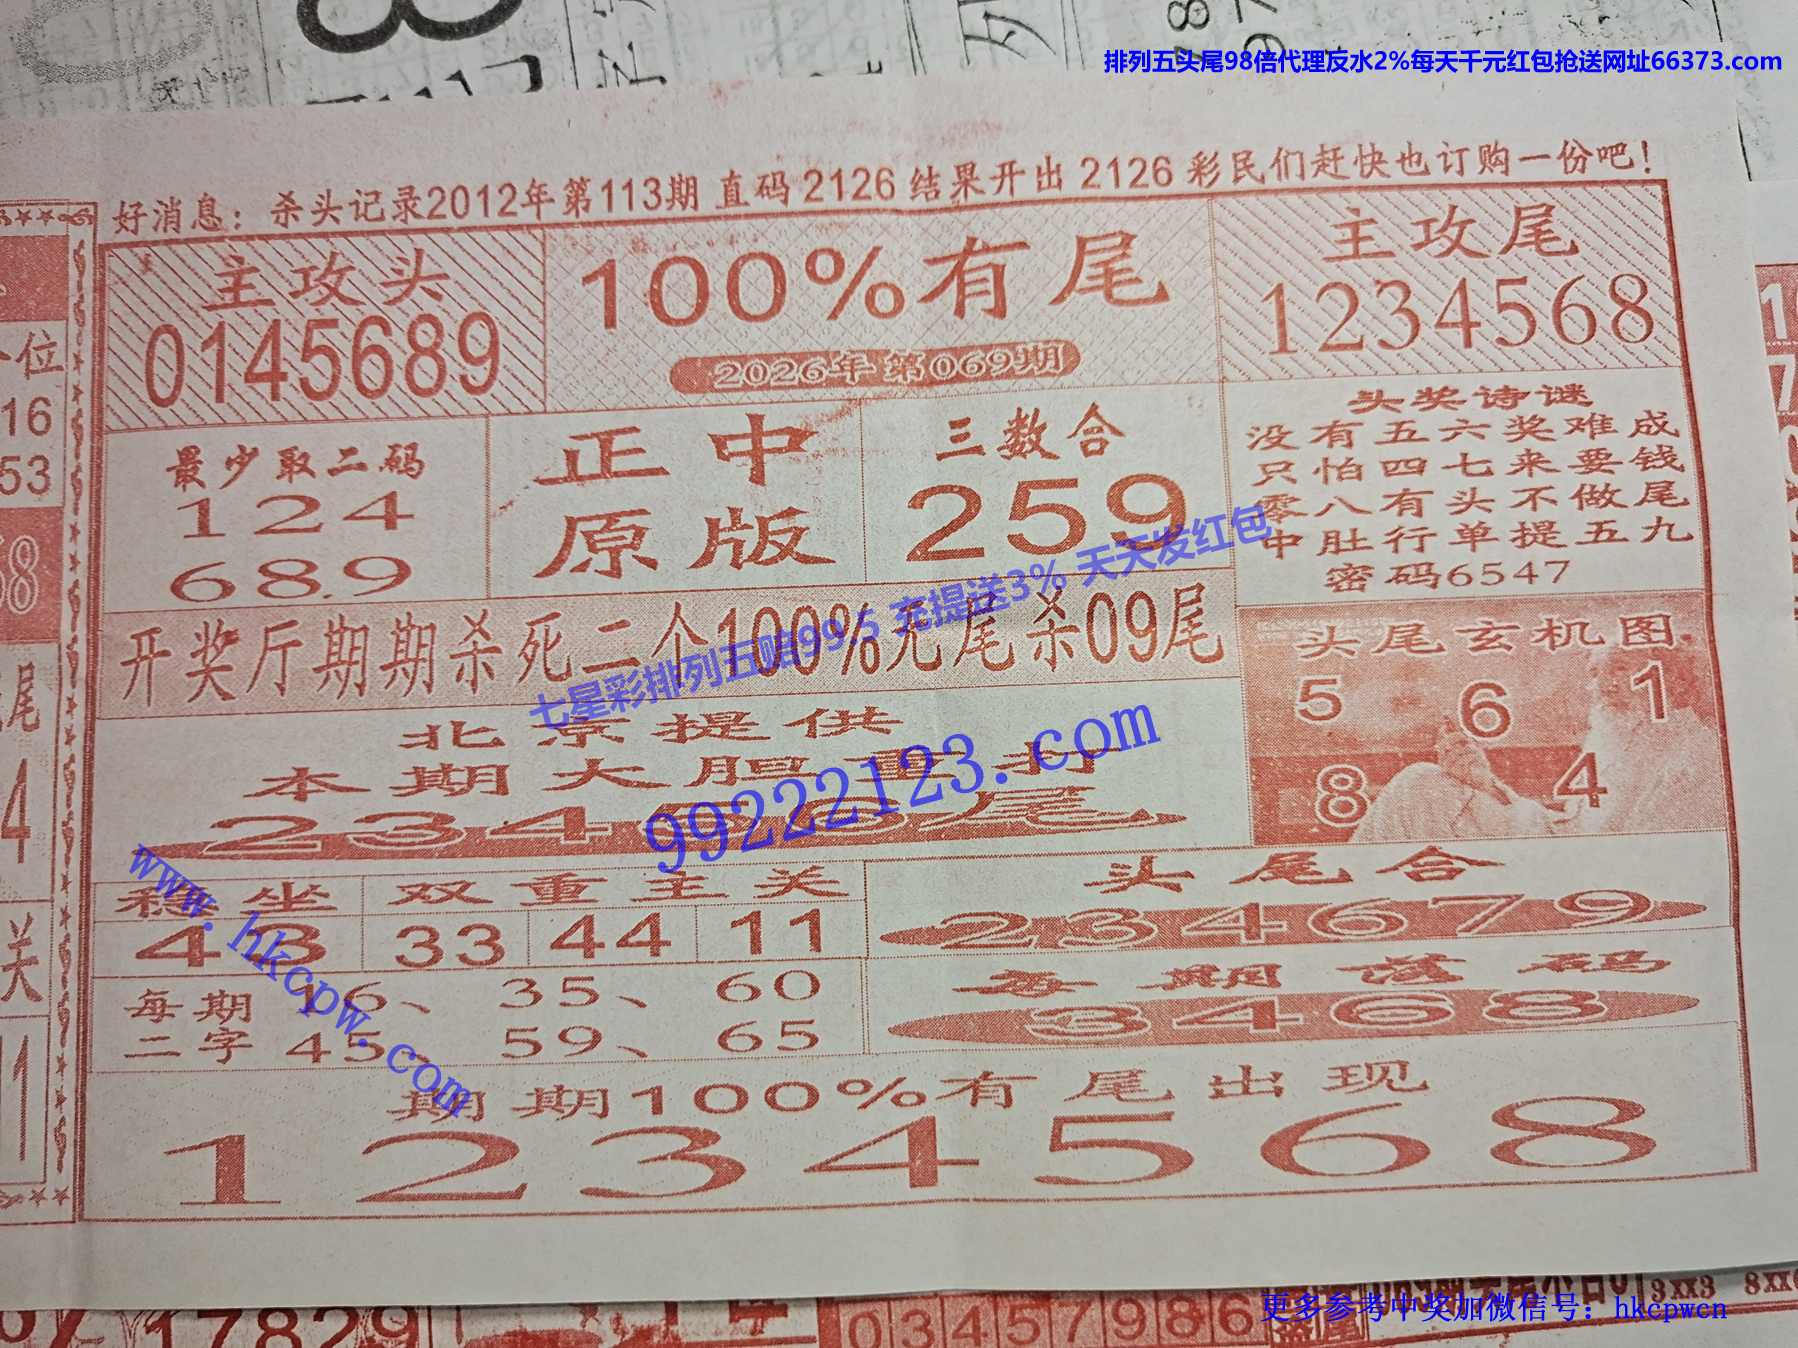 排列五头尾98倍代理反水2%每天千元红包抢送网址66373.com
好消息：杀头记录2012年第113期 直码 2126 结果开出 2126 彩民们赶快也订购一份吧！
主攻头
0145689
100%有尾
2026年 第069期
主攻尾
1234568
最少取二码
124
689
正中
原版
三数合
259
头奖诗谜
没有五六奖难成
只怕四七来要钱
零八有头不做尾
中肚行单提五九
密码6547
开奖厅期期杀死二个100%无尾杀09尾
七星彩排列五赔99.5 充提送3% 天天发红包
头尾玄机图
5 6 1
8 4
北京提供
本期大胆重打
99222123.com
稳坐 双重主关
48 33 44 11
头尾合
234679
每期 16、 35、 60
二字 45、 59、 65
每期落码
3468
www.hkcpw.com
期期100%有尾出现
1234568
位
16
53
68
尾
4
关
17829
0 3 4 5 7 9 8 6
3xx3
更多参考中奖加微信号：hkcpwcn